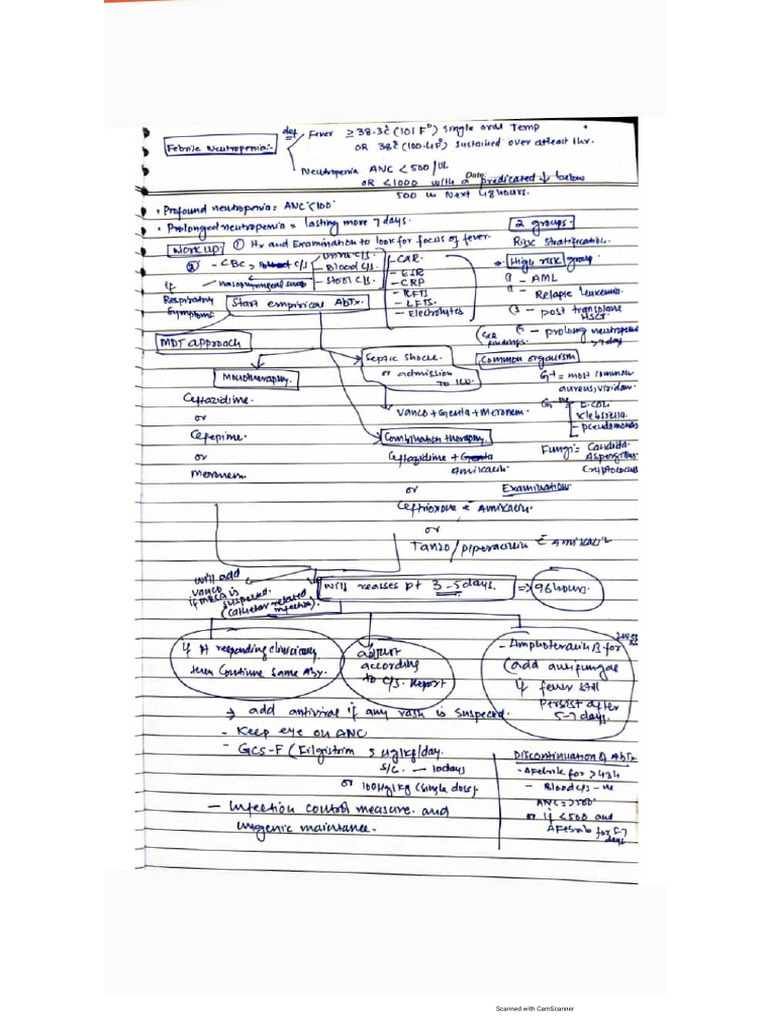 Febrile Neutropenia:-
def Fever ≥ 38.3c (101 F°) single oral Temp
OR 38c (100.4F°) sustained over atleast 1hr.
Neutropenia ANC < 500/UL
Date:
OR <1000 with a predicated ↓ below
500 in Next 48 hours.
• Profound neutropenia = ANC <100
• Prolonged neutropenia = lasting more 7 days.
Workup ① Hx and Examination to look for focus of fever.
② - CBC,
Urine c/s.
- Blood c/s.
- Stool c/s.
if nasopharyngeal swab
Respiratory
Symptoms
- CXR.
- ESR
- CRP
- RFTs
- LFTs
- Electrolytes
2 groups.
Risk stratification.
High risk group
- AML
- Relapse Leukemia.
- post transplant
HSCT
- prolong neutropenia
>7 day
Start empirical Abtx.
MDT approach
Monotherapy.
Ceftazidime.
or
Cefepime.
or
Meronem.
Septic shock.
or admission
to ICU.
Vanco + Genta + Meronem
Combination therapy
Ceftazidime + Genta
Amikacin.
or
Ceftriaxone c̄ Amikacin.
or
Tanzo/piperacillin c̄ Amikacin
Common organism
G+ = most common
aureus, viridans
G-ve
E.coli
Klebsiella.
- pseudomonas
Fungi = Candida.
Aspergillus
Cryptococcus
Examination
will add
vanco
if MRSA is
suspected.
(catheter related
infection).
will reasses pt 3-5 days. => 96 hours.
if pt responding clinically
then continue same Abx.
adjust
according
to C/S. report
- Amphotericin B for
(add antifungal
if fever still
Persist after
5-7 days.
→ add antiviral if any rash is suspected.
- Keep eye on ANC
- GCS-F (Filgristrim 5 ug/kg/day.
S/C. — 10days
or 10 ug/kg (single dose).
- Infection control measure. and
hygenic maintance.
Discontinuation of Abtx
- Afebrile for >
- Blood c/s -ve
ANC = >500
or if <500 and
Afebrile for 5-7
days
Scanned with CamScanner